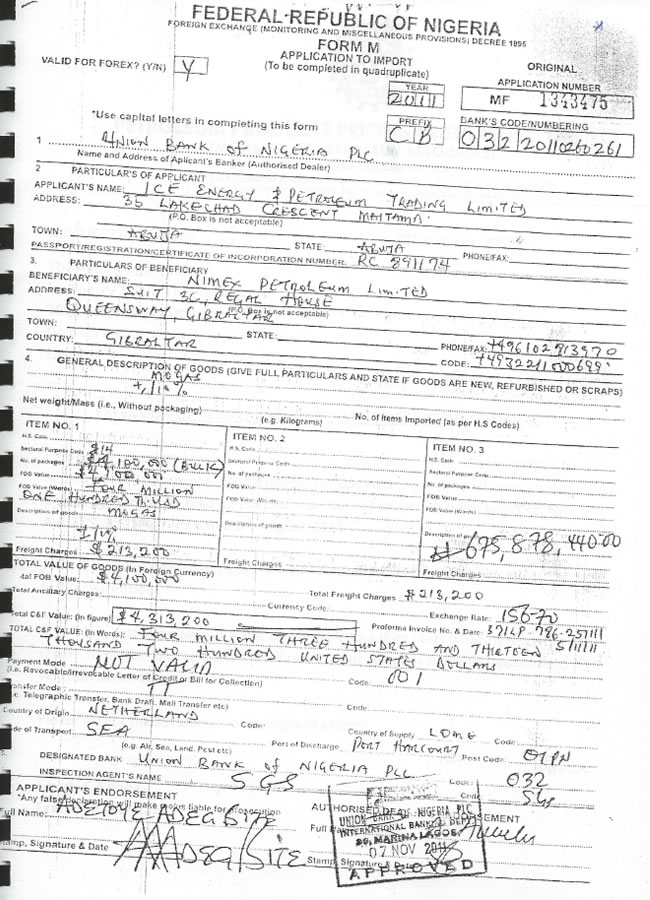 FEDERAL-REPUBLIC OF NIGERIA
FOREIGN EXCHANGE (MONITORING AND MISCELLANEOUS PROVISIONS) DECREE 1995
FORM M
APPLICATION TO IMPORT
(To be completed in quadruplicate)
VALID FOR FOREX? (Y/N) Y
ORIGINAL
YEAR
2011
APPLICATION NUMBER
MF 1343475
*Use capital letters in completing this form
PREFIX
CB
BANK'S CODE/NUMBERING
032 20110260261
1 UNION BANK OF NIGERIA PLC
Name and Address of Aplicant's Banker (Authorised Dealer)
2 PARTICULAR'S OF APPLICANT
APPLICANT'S NAME: ICE ENERGY & PETROLEUM TRADING LIMITED
ADDRESS: 35 LAKECHAD CRESCENT MAITAMA
(P.O. Box is not acceptable)
TOWN: ABUJA STATE: ABUJA PHONE/FAX:
PASSPORT/REGISTRATION/CERTIFICATE OF INCORPORATION NUMBER. RC 891174
3. PARTICULARS OF BENEFICIARY
BENEFICIARY'S NAME: NIMEX PETROLEUM LIMITED
ADDRESS: SUIT 3C, REGAL HOUSE
QUEENSWAY, GIBRALTAR (P.O. Box is not acceptable)
TOWN: STATE: PHONE/FAX:
COUNTRY: GIBRALTAR CODE:
4. GENERAL DESCRIPTION OF GOODS (GIVE FULL PARTICULARS AND STATE IF GOODS ARE NEW, REFURBISHED OR SCRAPS)
MOGAS
Net weight/Mass (i.e., Without packaging) (e.g. Kilograms) No. of items Imported (as per H.S Codes)
ITEM NO. 1 ITEM NO. 2 ITEM NO. 3
H.S. Code H.S. Code H.S. Code
Sectoral Purpose Code Sectoral Purpose Code Sectoral Purpose Code
No. of packages (BULK) No. of packages No. of packages
FOB Value FOB Value FOB Value
FOB Value (Words) FOUR MILLION FOB Value (Words) FOB Value (Words)
ONE HUNDRED
Description of goods MOGAS Description of goods Description of goods
675,878,440.00
Freight Charges $213,200 Freight Charges Freight Charges
TOTAL VALUE OF GOODS (In Foreign Currency)
FOB Value: $4,100,000
Total Ancillary Charges: Total Freight Charges $213,200
Currency Code: Exchange Rate: 156.70
Total C&F Value: (In figure) $4,313,200 Proforma Invoice No. & Date:
TOTAL C&F VALUE: (In Words): FOUR MILLION THREE HUNDRED AND THIRTEEN 5/11/11
THOUSAND TWO HUNDRED UNITED STATES DOLLARS
Payment Mode NOT VALID Code 001
(i.e. Revocable/Irrevocable Letter of Credit or Bill for Collection)
TT
Telegraphic Transfer, Bank Draft, Mail Transfer etc)
Country of Origin NETHERLAND Code: Country of Supply LOME Code
Transport SEA Port of Discharge PORT HARCOURT Post Code
(e.g. Air, Sea, Land, Post etc)
DESIGNATED BANK UNION BANK OF NIGERIA PLC Code: 032
INSPECTION AGENT'S NAME SGS SGS
APPLICANT'S ENDORSEMENT
*Any false declaration will make me/us liable for prosecution
Full Name: ADETOYE ADEGBITE
Stamp, Signature & Date ADEGBITE
UNION BANK OF NIGERIA PLC
INTERNATIONAL BANKING DEPT
MARINA LAGOS
07 NOV 2011
APPROVED